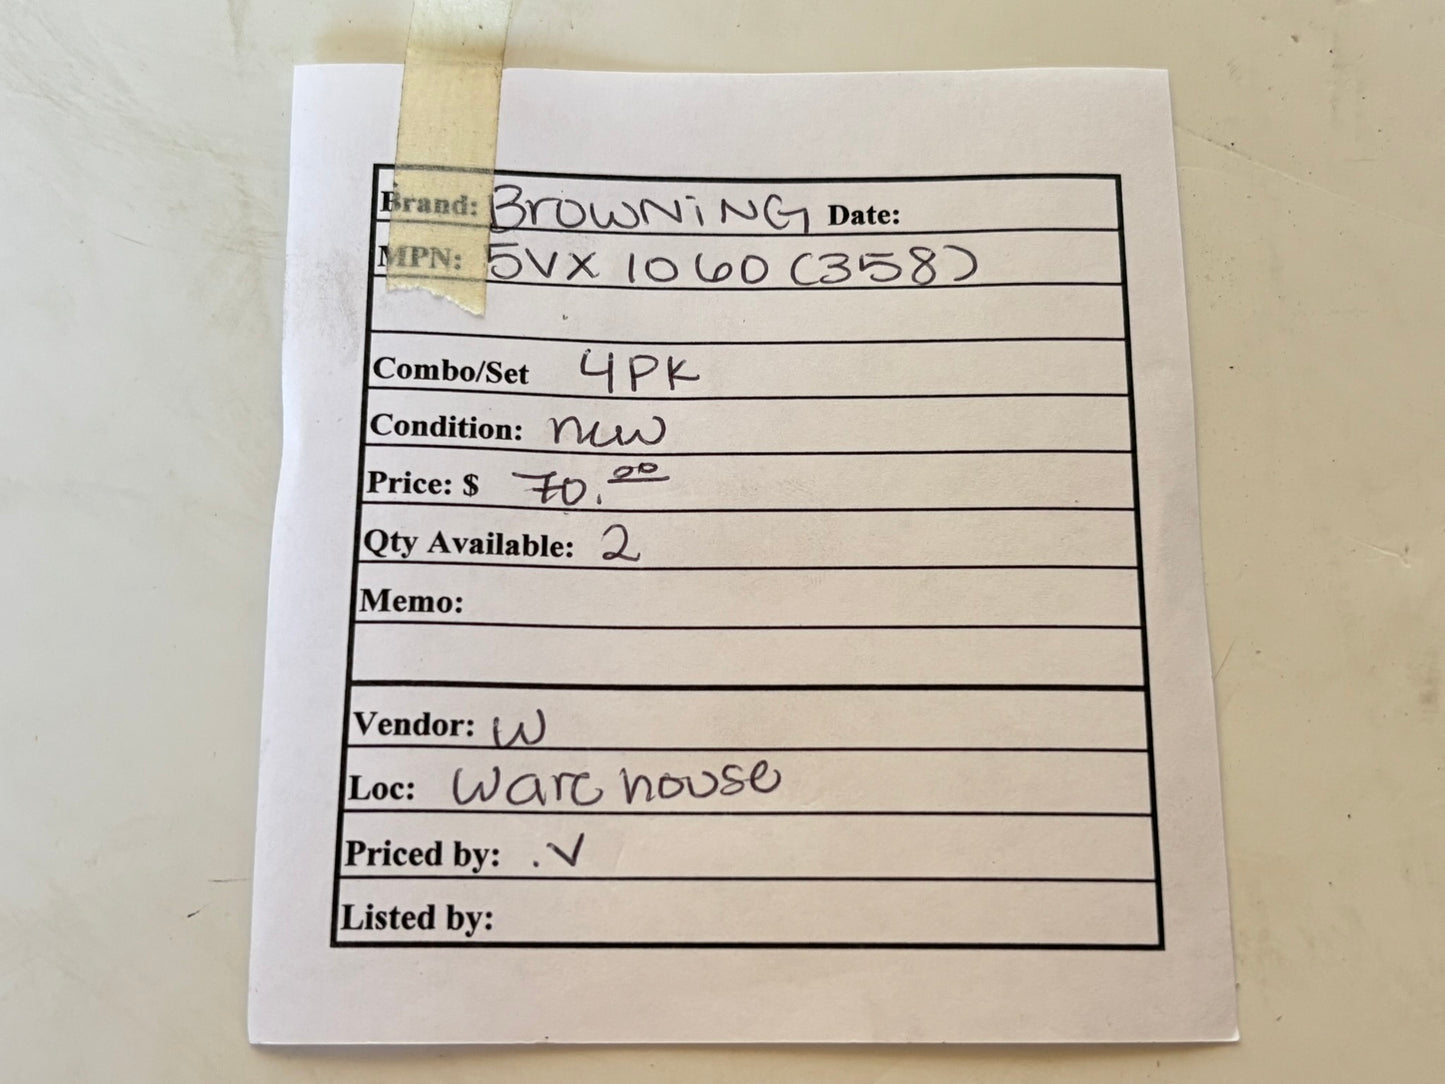 Brand: BROWNiNG Date:
MPN: 5VX 1060 (358)
Combo/Set 4PK
Condition: new
Price: $ 70.00
Qty Available: 2
Memo:
Vendor: W
Loc: Warehouse
Priced by: .V
Listed by: